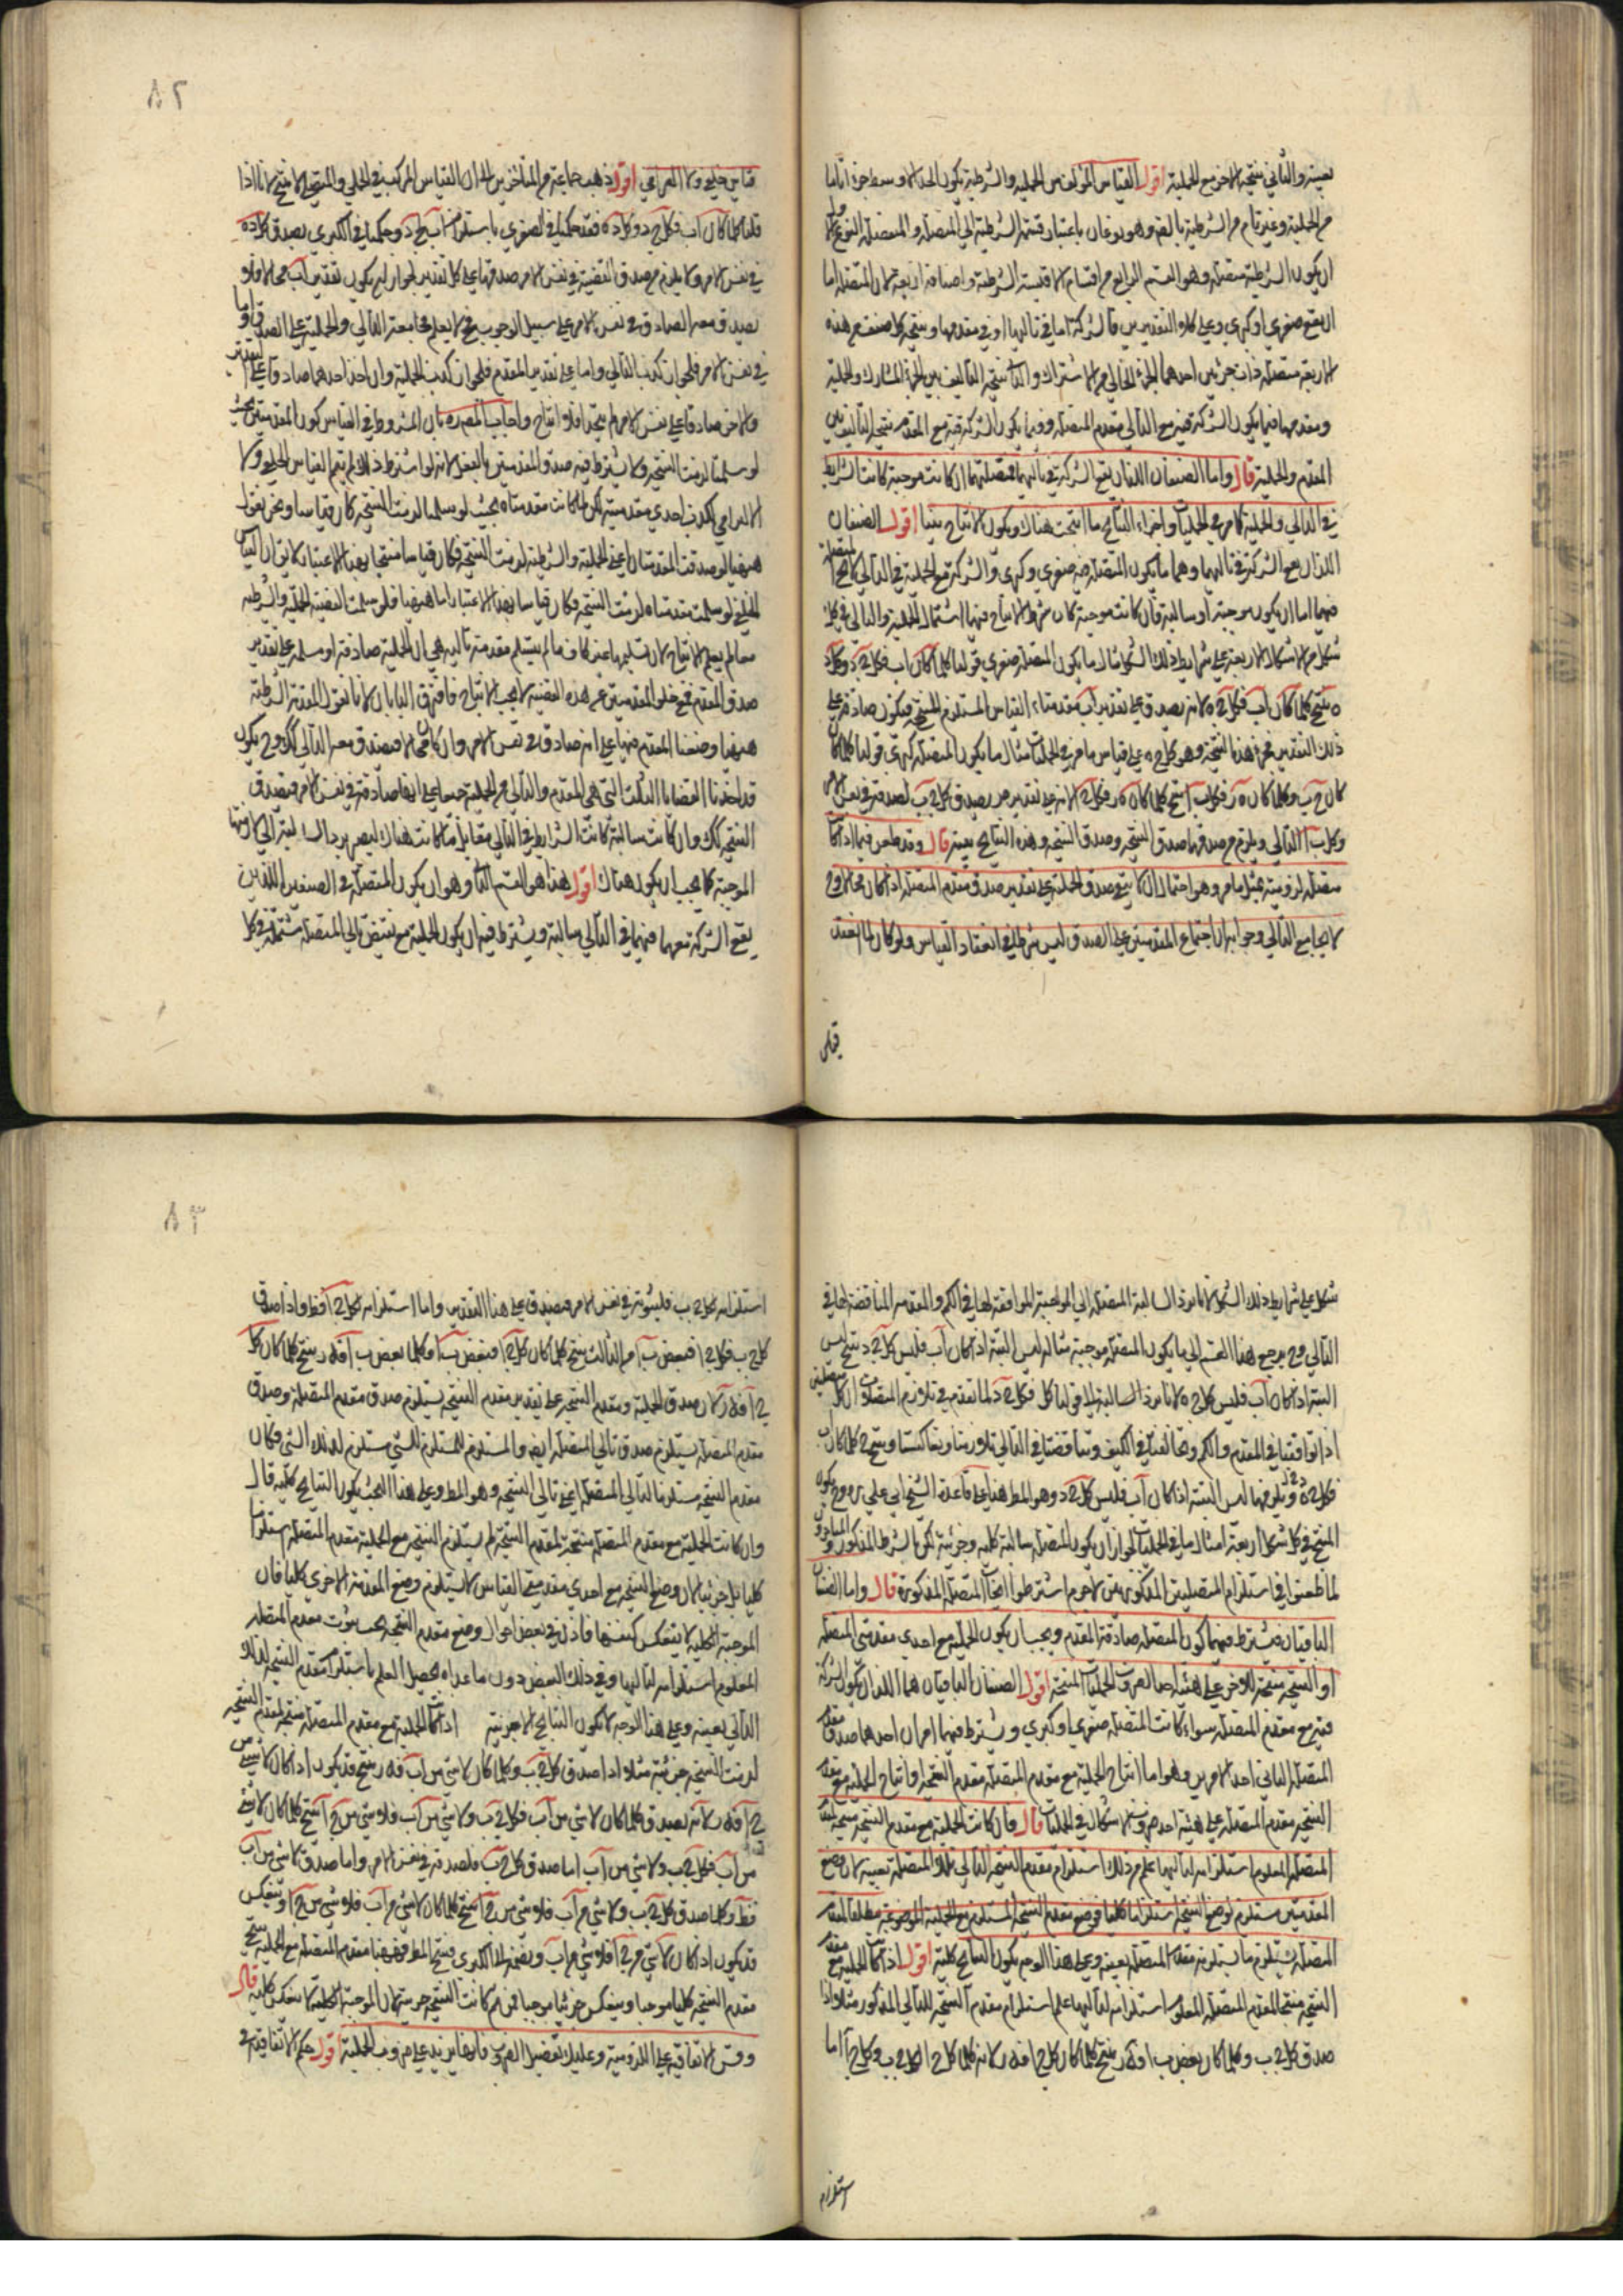 بعينه والثاني نتيجة الاخر مع الحملية اقول القياس المؤلف من الحملية والشرطية يكون الحد الاوسط جزءا تاما
من الحملية وغير تام من الشرطية بالضم وهو نوعان باعتبار قسمة الشرطية الى المتصلة والمنفصلة النوع الاول
ان يكون الشرطية متصلة وهو القسم الرابع من اقسام الاقيسة الشرطية واصنافه اربعة لان المتصلة اما
ان تقع صغرى او كبرى وعلى كلا التقديرين فالشركة اما في تاليها او في مقدمها ونتيجة كل صنف من هذه
الاربعة متصلة ذات جزئين احدهما الجزء الخالي من الاشتراك والثاني نتيجة التاليف بين الجزء المشارك والحملية
ومقدمها فيما يكون الشركة فيه مع التالي مقدم المتصلة وفيما يكون الشركة فيه مع المقدم نتيجة التاليف بين
المقدم والحملية قال واما الصنفان اللذان تقع الشركة في تاليهما فمتصلتهما ان كانت موجبة كانت الشرائط
في التالي والحملية كما مر في الحمليات واجزاء النتائج ما انتجت هناك ويكون الانتاج بينا اقول الصنفان
اللذان تقع الشركة في تاليهما وهما ما يكون المتصلة فيه صغرى وكبرى والشركة مع الحملية في التالي لا يخ المتصلة
فيهما اما ان يكون موجبة او سالبة فان كانت موجبة كان شرط الانتاج فيها اشتمال الحملية والتالي في كل
شكل من الاشكال الاربعة على شرايط ذلك الشكل مثال ما يكون المتصلة صغرى قولنا كلما كان اب فكل ج د وكل د
ه ينتج كلما كان اب فكل ج ه لانه يصدق على تقدير اب مقدمتا القياس المستلزم للنتيجة فيكون صادقة على
ذلك التقدير فهذه النتيجة وهو كل ج ه على قياس ما مر في الحمليات مثال ما يكون المتصلة كبرى قولنا كلما كان
كل ج ب وكلما كان ه ر فكل ب ا ينتج كلما كان ه ر فكل ج ا لانه على تقدير ه ر يصدق كل ج ب لصدقه في نفس الامر
وكل ب ا التالي ويلزم من صدقهما صدق النتيجة وصدق النتيجة وهذه النتائج بعينه قال وقد طعن فيما اذا كانت
متصلة لزومية بمثل ما مر وهو احتمال ان لا يبقى صدق الحملية على تقدير صدق مقدم المتصلة اذا كان محالا وح
لا يجامع التالي وجوابه ان اجتماع المقدمتين على الصدق ليس شرطا في انعقاد القياس ولو كان لما انعقد
قياس
٨٢
قياس خلفي ولا الزامي اقول ذهب جماعة من المتاخرين الى ان القياس المركب من الحملي والمتصل لا ينتج لانا اذا
قلنا كلما كان اب فكل ج د وكل د ه فقد حكمنا في الصغرى باستلزام اب لج د وحكمنا في الكبرى بصدق كل د ه
في نفس الامر ولا يلزم من صدق القضية في نفس الامر صدقها على كل تقدير لجواز ان يكون تقدير اب محالا فلا
يصدق معه الصادق في نفس الامر على سبيل الوجوب فح لا يعلم مجامعة التالي والحملية على الصدق اما
في نفس الامر فلجواز كذب التالي واما على تقدير المقدم فلجواز كذب الحملية وان اخذ احدهما صادقا على التقدير
والاخر صادقا على نفس الامر لم يتحد فلا انتاج واجاب المصره بان المشروط في القياس كون المقدمتين بحيث
لو سلمتا لزمت النتيجة ولا يشترط فيه صدق المقدمتين بالفعل لانه لو اشترط ذلك لم يتم القياس الخلفي ولا
الالزامي لكذب احدى مقدمتيه لكن لما كانت مقدمتاه بحيث لو سلمتا لزمت النتيجة كان قياسا ونحن نقول
ههنا لو صدقت المقدمتان اعني الحملية والشرطية لزمت النتيجة فكان قياسا منتجا بهذا الاعتبار لا يقال القياس
الخلفي لو سلمت مقدمتاه لزمت النتيجة فكان قياسا بهذا الاعتبار اما ههنا فلو سلمت القضية الحملية والشرطية
معا لم يعلم الانتاج لان تسليمهما غير كاف ما لم يتسلم مقدمة ثالثة هي ان الحملية صادقة او مسلمة على تقدير
صدق المقدم فمع خلو المقدمتين عن هذه القضية لا يجب الانتاج فافترق البابان لانا نقول المقدمة الشرطية
ههنا وضعنا المقدم فيها على انه صادق في نفس الامر وان كان محالا فيصدق معه التالي كذلك وح يكون
قد اخذنا القضايا الثلث التي هي المقدم والتالي من الحملية جميعا على انها صادقة في نفس الامر فيصدق
النتيجة كذلك وان كانت سالبة كانت الشرايط في التالي مقابل ما كانت هناك ليصير برد السالبة الى لازمتها
الموجبة كما يجب ان يكون هناك اقول هذا هو القسم الثاني وهو ان يكون المتصلة في الصنفين اللذين
يقع الشركة معهما فيهما في التالي سالبة ويشترط فيه ان يكون الحملية مع نقيض تالي المتصلة مشتملة في كل
شكل على شرايط ذلك الشكل لانا نرد السالبة المتصلة الى الموجبة الموافقة لها في الكم والمقدم المناقضة لها في
التالي وح يرجع هذا القسم الى ما يكون المتصلة موجبة مثاله ليس البتة اذا كان اب فليس كل ج د ينتج ليس
البتة اذا كان اب فليس كل ج ه لانا نرد السالبة الى قولنا كل فكل ج د لما تقدم في تلازم المتصلات ان كل متصلتين
اذا توافقتا في المقدم والكم وتخالفتا في الكيف وتناقضتا في التالي تلازمتا وتعاكستا وينتج ح كلما كان اب
فكل ج ه ويلزمها ليس البتة اذا كان اب فليس كل ج د وهو المط هذا على قاعدة الشيخ ابي علي وح يكون
المنتج في كل شكل اربعة امثال ما في الحمليات لجواز ان يكون المتصلة سالبة كلية وجزئية لكن بالشرط المذكور والمتاخرون
لما طعنوا في استلزام المتصلتين المذكورتين لا جرم اشترطوا ايجاب المتصلة المذكورة قال واما الصنفان
الباقيان فيشترط فيهما كون المتصلة صادقة المقدم ويجب ان يكون الحملية مع احدى مقدمتي المتصلة
او النتيجة منتجة للاخرى على هيئة احد ضروب الحمليات المنتجة اقول الصنفان الباقيان هما اللذان يكون الشركة
فيه مع مقدم المتصلة سواء كانت المتصلة صغرى او كبرى ويشترط فيهما امران احدهما صدق مقدم
المتصلة الثاني احد الامرين وهو اما انتاج الحملية مع مقدم المتصلة مقدم النتيجة او انتاج الحملية مع مقدم
النتيجة مقدم المتصلة على هيئة احد ضروب الاشكال في الحمليات قال فان كانت الحملية مع مقدم النتيجة منتجة لمقدم
المتصلة المعلوم استلزامه لتاليها علم من ذلك استلزام مقدم النتيجة لتالي تلك المتصلة بعينه لان وضع
المقدمتين مستلزم لوضع النتيجة استلزاما كليا فوضع مقدم النتيجة المستلزم مع الحملية الموضوعة مطلقا لمقدم
المتصلة يستلزم ما يستلزمه مقدم المتصلة بعينه وعلى هذا الوجه يكون النتائج كلية اقول اذا كانت الحملية مع مقدم
النتيجة منتجا لمقدم المتصلة المعلوم استلزامه لتاليها علم استلزام مقدم النتيجة للتالي المذكور مثلا اذا
صدق كل ج ب وكلما كان بعض ب ا فه ر ينتج كلما كان كل ج ا فه ر لانه كلما كان كل ج ا فكل ج ب وكل ج ا اما
استلزام
٨٣
استلزامه لكل ج ب فلثبوته في نفس الامر فيصدق على هذا التقدير واما استلزامه لكل ج ا فظ واذا صدق
كل ج ب فكل ج ا فبعض ب ا من الثالث ينتج كلما كان كل ج ا فبعض ب ا وكلما بعض ب ا فه ر ينتج كلما كان كل
ج ا فه ر لان صدق الحملية ومقدم النتيجة على تقدير مقدم النتيجة يستلزم صدق مقدم المتصلة وصدق
مقدم المتصلة يستلزم صدق تالي المتصلة ايض والمستلزم للمستلزم للشي مستلزم لذلك الشي فكان
مقدم النتيجة مستلزما لتالي المتصلة اعني تالي النتيجة وهو المط وعلى هذا البحث يكون النتايج كلية قال
وان كانت الحملية مع مقدم المتصلة منتجة لمقدم النتيجة لم يستلزم النتيجة مع الحملية مقدم المتصلة استلزاما
كليا بل جزئيا لان وضع النتيجة مع احدى مقدمتي القياس لا يستلزم وضع المقدمة الاخرى كليا فان
الموجبة الكلية لا ينعكس كنفسها فاذن في بعض احوال وضع مقدم النتيجة يجب ثبوت مقدم المتصلة
المعلوم استلزامه لتاليها وفي ذلك البعض دون ما عداه يحصل العلم باستلزام مقدم النتيجة لذلك
التالي بعينه وعلى هذا الوجه لا يكون النتايج الا جزئية اذا كانت الحملية مع مقدم المتصلة منتجة لمقدم النتيجة
لزمت النتيجة جزئية مثلا اذا صدق كل ج ب وكلما كان لا شي من اب فه ر ينتج قد يكون اذا كان لا شي من
ج ا فه ر لانه يصدق كلما كان لا شي من اب فكل ج ب ولا شي من اب فلا شي من ج ا ينتج كلما كان لا شي
من اب فكل ج ب ولا شي من اب اما صدق كل ج ب فلصدقه في نفس الامر واما صدق لا شي من اب
فظ وكلما صدق كل ج ب ولا شي من اب فلا شي من ج ا ينتج كلما كان لا شي من اب فلا شي من ج ا وينعكس
قد يكون اذا كان لا شي من ج ا فلا شي من اب ونضمه الى الكبرى فينتج المط فههنا مقدم المتصلة مع الحملية ينتج
مقدم النتيجة كليا موجبا وينعكس جزئيا موجبا فمن ثم كانت النتيجة جزئية لان الموجبة الكلية لا ينعكس كلية قال
وقس الاتفاقية على اللزومية وعليك تفصيل الضروب فانها يزيد على ضروب الحملية اقول حكم الاتفاقية في